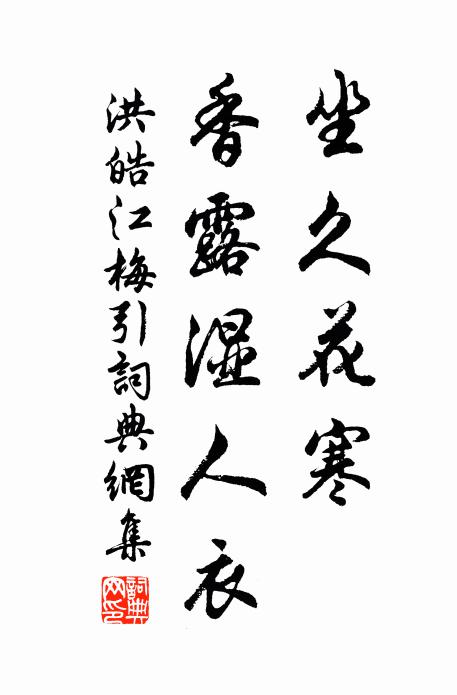 坐久花寒
香露湿人衣
洪皓江梅引詞典網集
詞典网印